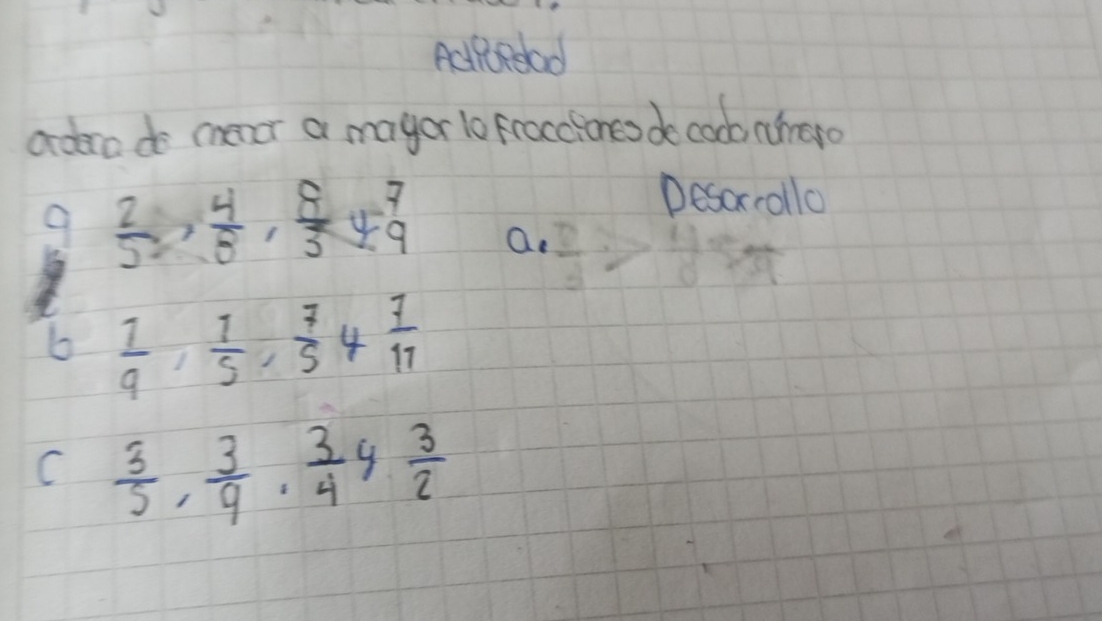 Actividad
ordena de menor a mayor la fracciones de cada número
a 2/5, 4/8, 8/3 y 7/9
Desarrollo
a.
b 1/9, 1/5, 7/5 y 7/11
c 3/5, 3/9, 3/4 y 3/2